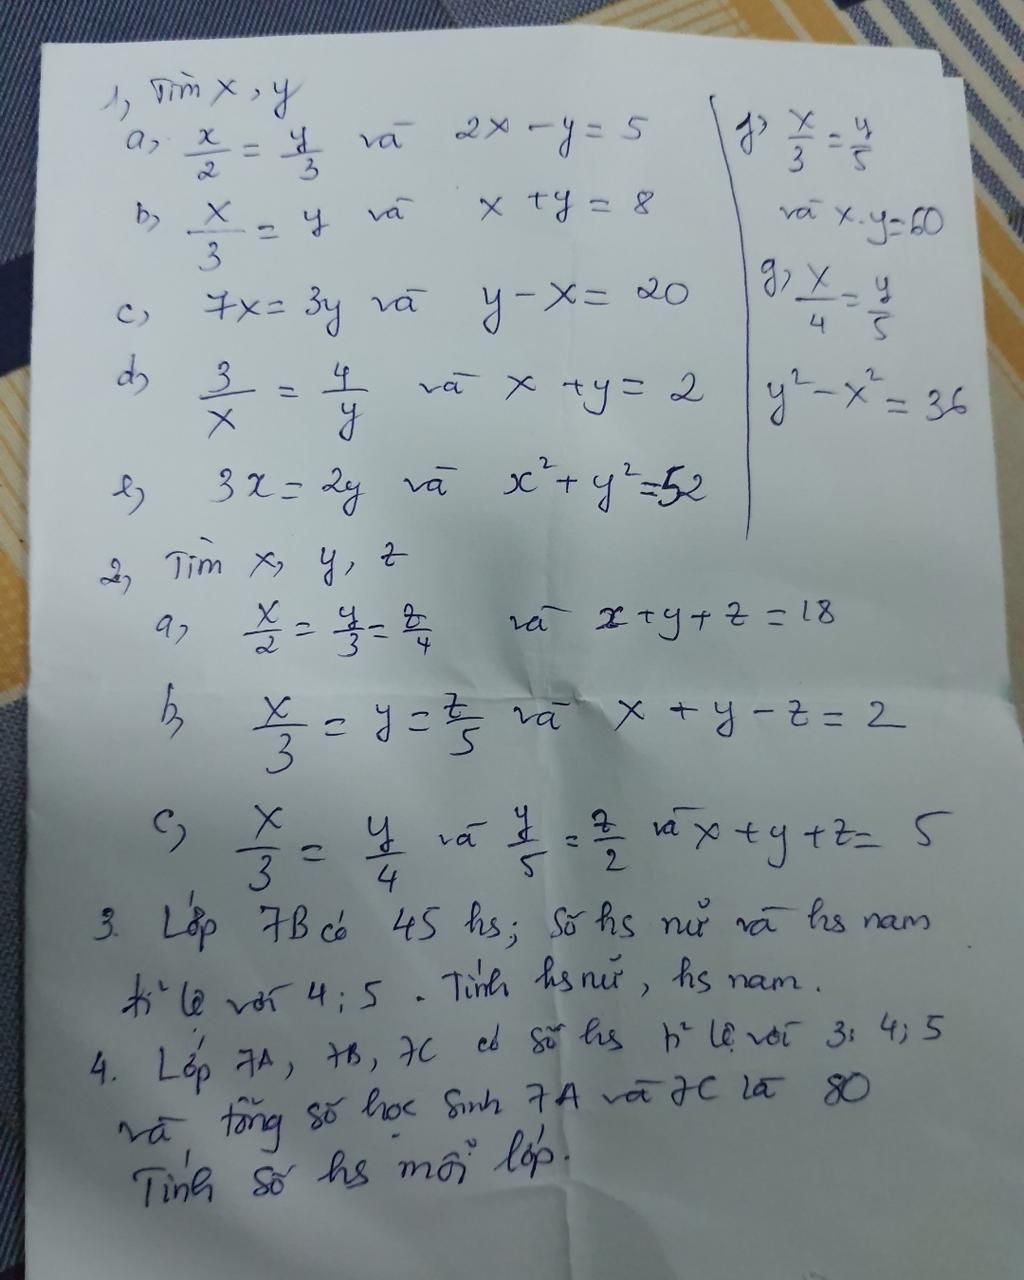 1, Tìm x, y
a, x/2 = y/3 và 2x - y = 5
b, x/3 = y và x + y = 8
c, 7x = 3y và y - x = 20
d, 3/x = 4/y và x + y = 2
e, 3x = 2y và x² + y² = 52
f, x/3 = y/5
và x.y = 60
g, x/4 = y/5
y² - x² = 36
2, Tìm x, y, z
a, x/2 = y/3 = z/4 và x + y + z = 18
b, x/3 = y = z/5 và x + y - z = 2
c, x/3 = y/4 và y/5 = z/2 và x + y + z = 5
3. Lớp 7B có 45 hs; số hs nữ và hs nam
tỉ lệ với 4; 5. Tính hs nữ, hs nam.
4. Lớp 7A, 7B, 7C có số hs tỉ lệ với 3; 4; 5
và tổng số học sinh 7A và 7C là 80
Tính số hs mỗi lớp.